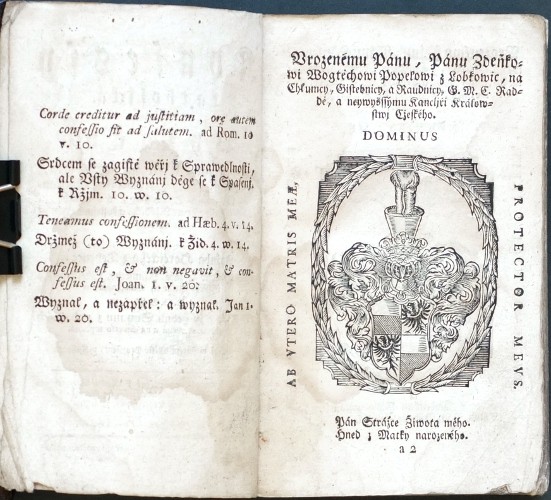 Corde creditur ad justitiam, ore autem
confessio fit ad salutem. ad Rom. 10
v. 10.
Srdcem se zagisté wěřj k Sprawedlnosti,
ale Vsty Wyznánj děge se k Spasenj.
k Ržjm. 10. w. 10.
Teneamus confessionem. ad Hæb. 4. v. 14.
Držmež (to) Wyznánj. k Žid. 4. w. 14.
Confessus est, & non negavit, & con-
fessus est. Joan. 1. v. 20.
Wyznal, a nezapřel: a wyznal. Jan 1.
w. 20.
Vrozenému Pánu, Pánu Zdeňko-
wi Wogtěchowi Popelowi z Lobkowic, na
Chlumcy, Gistebnicy, a Raudnicy, G. M. C. Rad-
dě, a neywyšssýmu Kancléři Králow-
stwj Cžeského.
DOMINUS
AB VTERO MATRIS MEÆ,
PROTECTOR MEVS.
Pán Strážce Žiwota mého.
Hned z Matky narozeného.
a 2